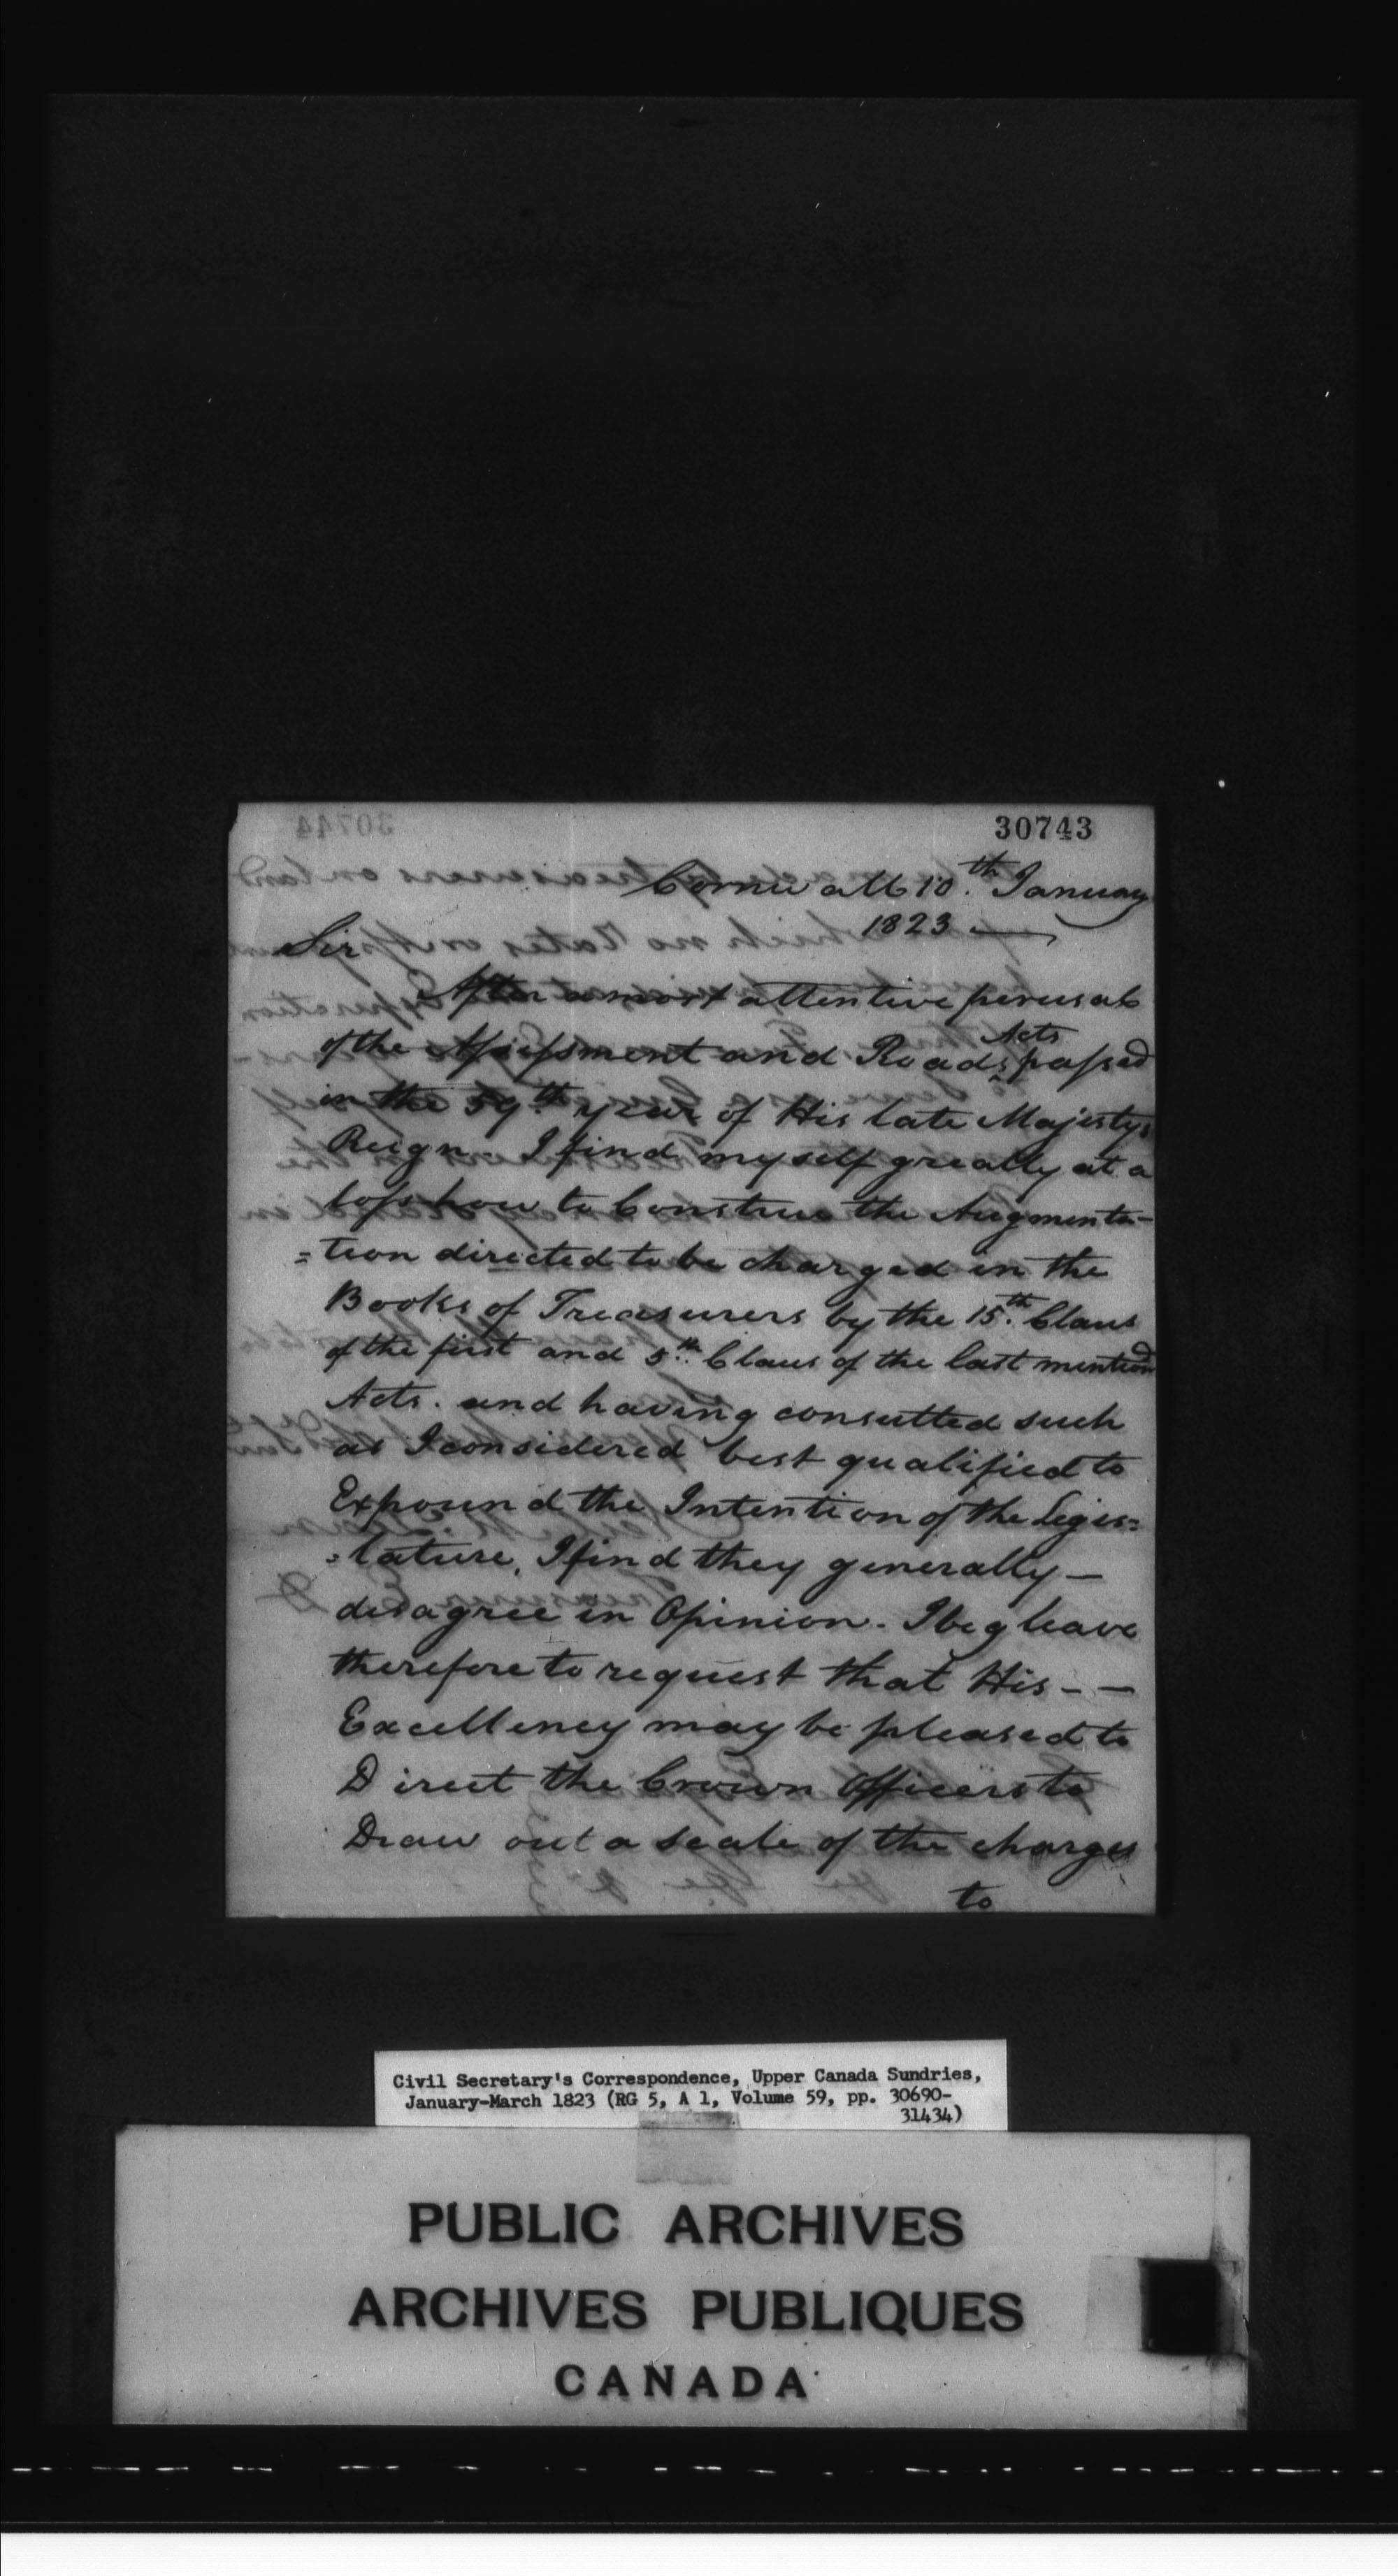 30743
Cornwall 10th. January
1823
Sir
After a most attentive perusal
of the Assessment and Roads Acts passed
in the 59th. year of His late Majestys
Reign. I find myself greatly at a
loss how to Construe the Augmenta-
=tion directed to be charged in the
Books of Treasurers by the 15th. Claus
of the first and 5th. Claus of the last mentiond
Acts. and having consulted such
as I considered best qualified to
Expound the Intention of the Legis=
=lature, I find they generally —
disagree in Opinion. I beg leave
therefore to request that His - —
Excellency may be pleased to
Direct the Crown Officers to
Draw out a Scale of the charges
to
Civil Secretary's Correspondence, Upper Canada Sundries,
January-March 1823 (RG 5, A 1, Volume 59, pp. 30690-
31434)
PUBLIC ARCHIVES
ARCHIVES PUBLIQUES
CANADA